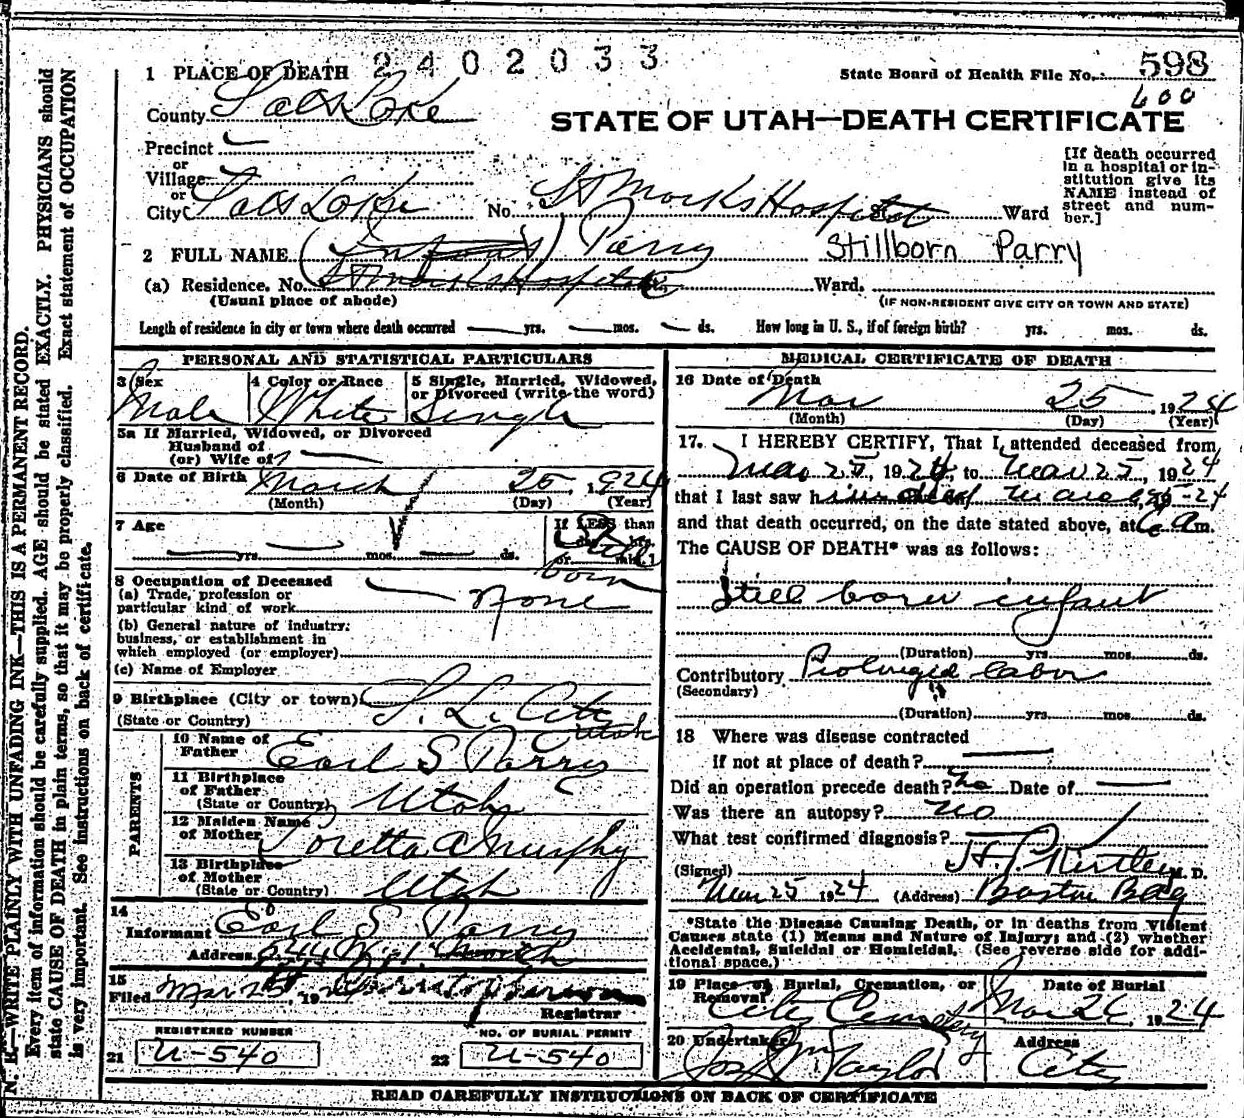 2402033
1 PLACE OF DEATH
State Board of Health File No. 598
600
County Salt Lake
STATE OF UTAH—DEATH CERTIFICATE
Precinct
or
Village
or
City Salt Lake No. St Marks Hospital St. Ward
[If death occurred in a hospital or in-
stitution give its
NAME instead of
street and num-
ber.]
2 FULL NAME (Infant) Parry Stillborn Parry
(a) Residence. No. St Marks Hospital Ward.
(Usual place of abode)
(IF NON-RESIDENT GIVE CITY OR TOWN AND STATE)
Length of residence in city or town where death occurred yrs. mos. ds. How long in U. S., if of foreign birth? yrs. mos. ds.
PERSONAL AND STATISTICAL PARTICULARS
3 Sex Male
4 Color or Race White
5 Single, Married, Widowed,
or Divorced (write the word)
Single
5a If Married, Widowed, or Divorced
Husband of
(or) Wife of
6 Date of Birth March 25, 1924
(Month) (Day) (Year)
7 Age
yrs. mos. ds.
If LESS than
Still
born
8 Occupation of Deceased
(a) Trade, profession or
particular kind of work None
(b) General nature of industry,
business, or establishment in
which employed (or employer)
(c) Name of Employer
9 Birthplace (City or town) S. L. City
(State or Country) Utah
PARENTS
10 Name of
Father Earl S Parry
11 Birthplace
of Father
(State or Country) Utah
12 Maiden Name
of Mother Loretta A Murphy
13 Birthplace
of Mother
(State or Country) Utah
14
Informant Earl S. Parry
Address
15
Filed Mar 25, 19
Registrar
REGISTERED NUMBER
21 U-540
NO. OF BURIAL PERMIT
22 U-540
MEDICAL CERTIFICATE OF DEATH
16 Date of Death
Mar 25, 1924
(Month) (Day) (Year)
17. I HEREBY CERTIFY, That I attended deceased from
Mar 25, 1924, to Mar 25, 1924
that I last saw h
and that death occurred, on the date stated above, at 6 A m.
The CAUSE OF DEATH* was as follows:
Still born infant
(Duration) yrs. mos. ds.
Contributory Prolonged labor
(Secondary)
(Duration) yrs. mos. ds.
18 Where was disease contracted
If not at place of death?
Did an operation precede death? No Date of
Was there an autopsy? No
What test confirmed diagnosis?
(Signed) H. P. Kirtley M. D.
Mar 25 1924 (Address) Boston Bldg
*State the Disease Causing Death, or in deaths from Violent
Causes state (1) Means and Nature of Injury; and (2) whether
Accidental, Suicidal or Homicidal. (See reverse side for addi-
tional space.)
19 Place of Burial, Cremation, or
Removal
City Cemetery
Date of Burial
Mar 26, 1924
20 Undertaker
Jos Wm Taylor
Address
City
READ CAREFULLY INSTRUCTIONS ON BACK OF CERTIFICATE
N. B.—WRITE PLAINLY WITH UNFADING INK—THIS IS A PERMANENT RECORD.
Every item of information should be carefully supplied. AGE should be stated EXACTLY. PHYSICIANS should
state CAUSE OF DEATH in plain terms, so that it may be properly classified. Exact statement of OCCUPATION
is very important. See instructions on back of certificate.